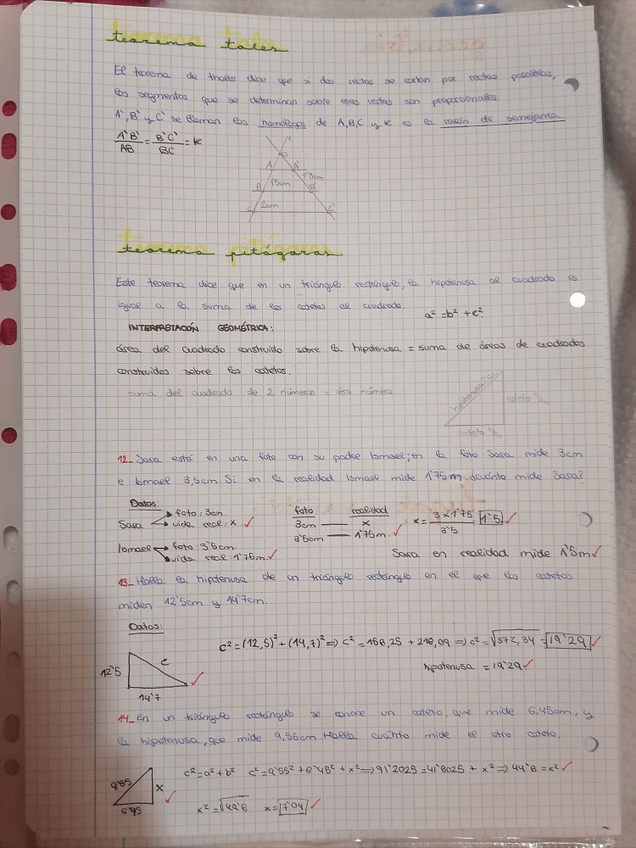 teorema tales
El teorema de thales dice que si dos rectas se cortan por rectas paralelas,
los segmentos que se determinan sobre esas rectas son proporcionales.
A', B' y C' se llaman los homólogos de A, B, C y k es la razón de semejanza
A'B'/AB = B'C'/BC = k
A A'
15cm 13cm
B B'
2cm
C C'
teorema pitágoras
Este teorema dice que en un triángulo rectángulo, la hipotenusa al cuadrado es
igual a la suma de los catetos al cuadrado. a² = b² + c²
INTERPRETACIÓN GEOMÉTRICA:
área del cuadrado construido sobre la hipotenusa = suma de áreas de cuadrados
construidos sobre los catetos.
suma del cuadrado de 2 números = otro número
hipotenusa
cateto
cateto
12_ Sara está en una foto con su padre Ismael; en la foto Sara mide 3cm
e Ismael 3,5cm. Si en la realidad Ismael mide 1'75m ¿cuánto mide Sara?
Datos:
Sara foto: 3cm.
vida real: x
Ismael foto: 3'5cm.
vida real: 1'75m.
foto realidad
3cm — x
3'5cm — 1'75m.
x = 3 x 1'75 / 3'5 1'5
Sara en realidad mide 1'5m
13_ Halla la hipotenusa de un triángulo rectángulo en el que los catetos
miden 12'5cm y 14'7cm.
Datos:
12'5 c
14'7
c² = (12,5)² + (14,7)² ⇒ c² = 156,25 + 216,09 ⇒ c² = √372,34 = 19'29
hipotenusa = 19'29
14_ En un triángulo rectángulo se conoce un cateto, que mide 6,45cm, y
la hipotenusa, que mide 9,55cm Halla cuánto mide el otro cateto.
9'55 x
6'45
c² = a² + b² c² = 9'55² = 6'45² + x² ⇒ 91'2025 = 41'6025 + x² ⇒ 49'6 = x²
x² = √49'6 x = 7'04